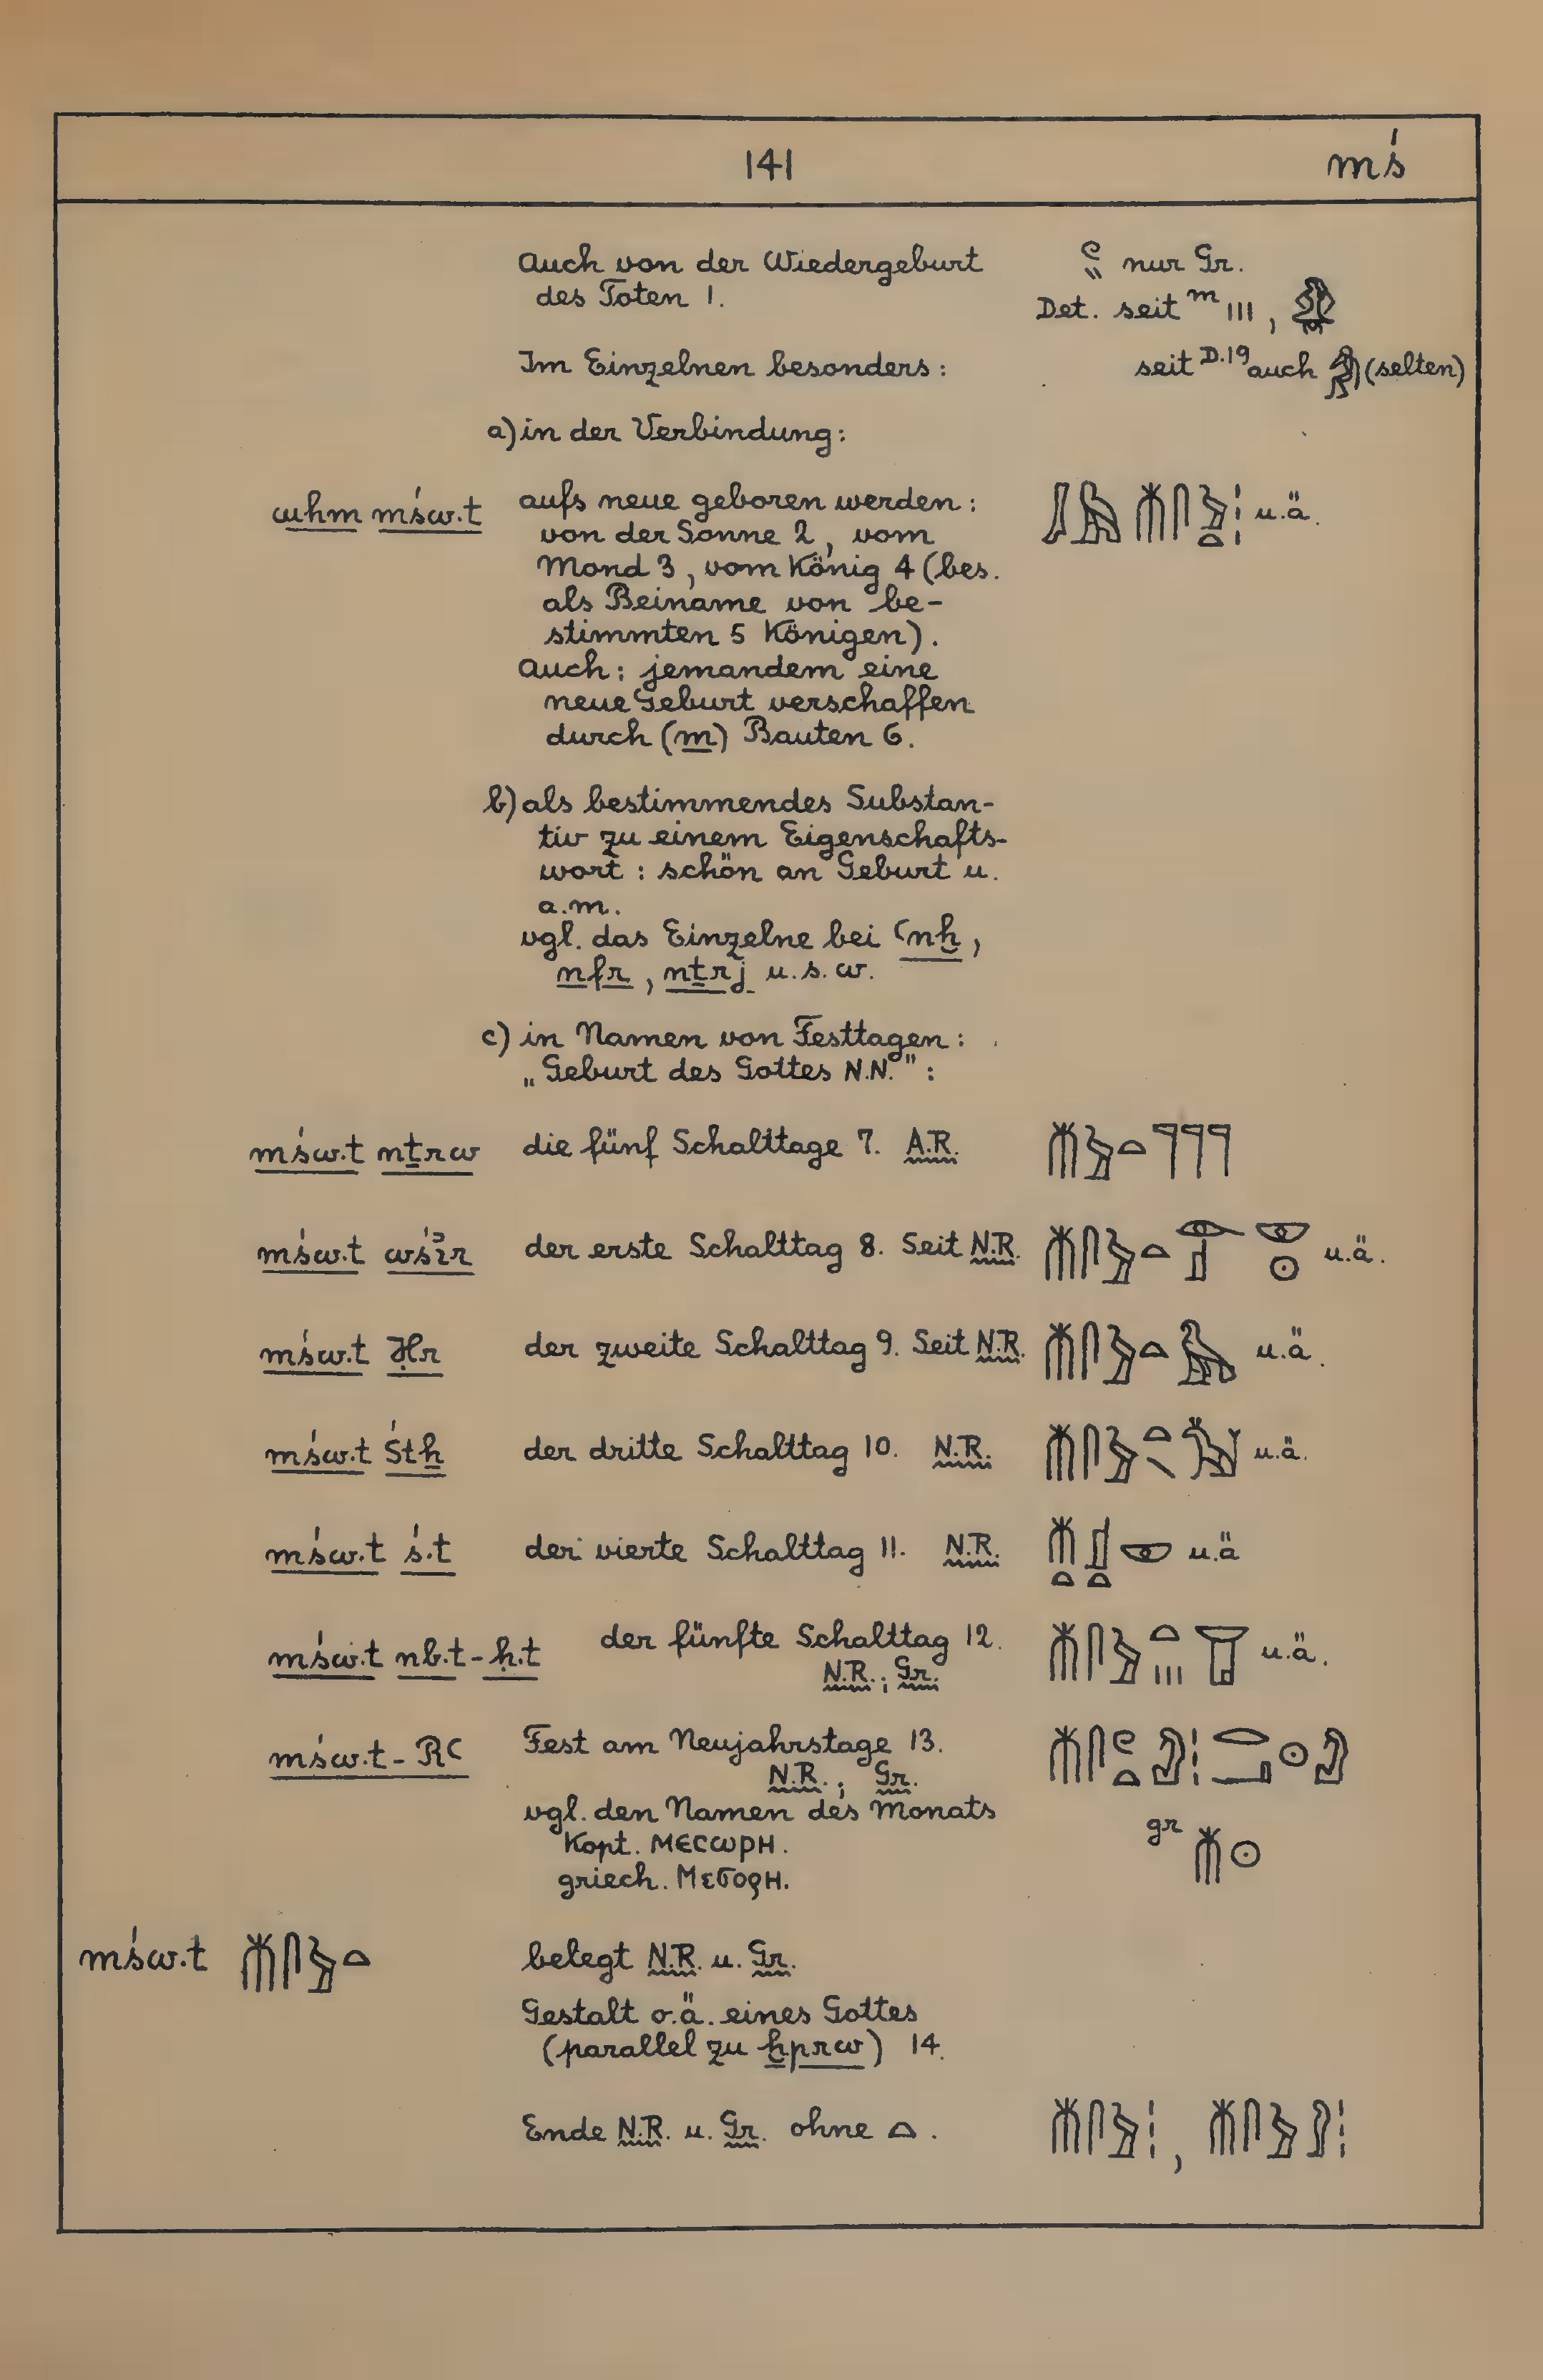 141 mś
Auch von der Wiedergeburt
des Toten 1.
nur Gr.
Det. seit m III,
Im Einzelnen besonders:
seit D.19 auch (selten)
a) in der Verbindung:
wḥm mśw.t aufs neue geboren werden: u.ä.
von der Sonne 2, vom
Mond 3, vom König 4 (bes.
als Beiname von be-
stimmten 5 Königen).
Auch: jemandem eine
neue Geburt verschaffen
durch (m) Bauten 6.
b) als bestimmendes Substan-
tiv zu einem Eigenschafts-
wort: schön an Geburt u.
a.m.
vgl. das Einzelne bei ꜥnḫ,
nfr, nṯrj u.s.w.
c) in Namen von Festtagen:
„Geburt des Gottes N.N.":
mśw.t nṯrw die fünf Schalttage 7. A.R.
mśw.t wśı͗r der erste Schalttag 8. Seit N.R. u.ä.
mśw.t Ḥr der zweite Schalttag 9. Seit N.R. u.ä.
mśw.t Śtẖ der dritte Schalttag 10. N.R. u.ä.
mśw.t ś.t der vierte Schalttag 11. N.R. u.ä
mśw.t nb.t-ḥ.t der fünfte Schalttag 12. u.ä.
N.R.; Gr.
mśw.t-Rꜥ Fest am Neujahrstage 13.
N.R.; Gr.
vgl. den Namen des Monats
gr
Kopt. ⲘⲈⲤⲰⲢⲎ.
griech. ΜεσορΗ.
mśw.t belegt N.R. u. Gr.
Gestalt o.ä. eines Gottes
(parallel zu ḫprw) 14.
Ende N.R. u. Gr. ohne .